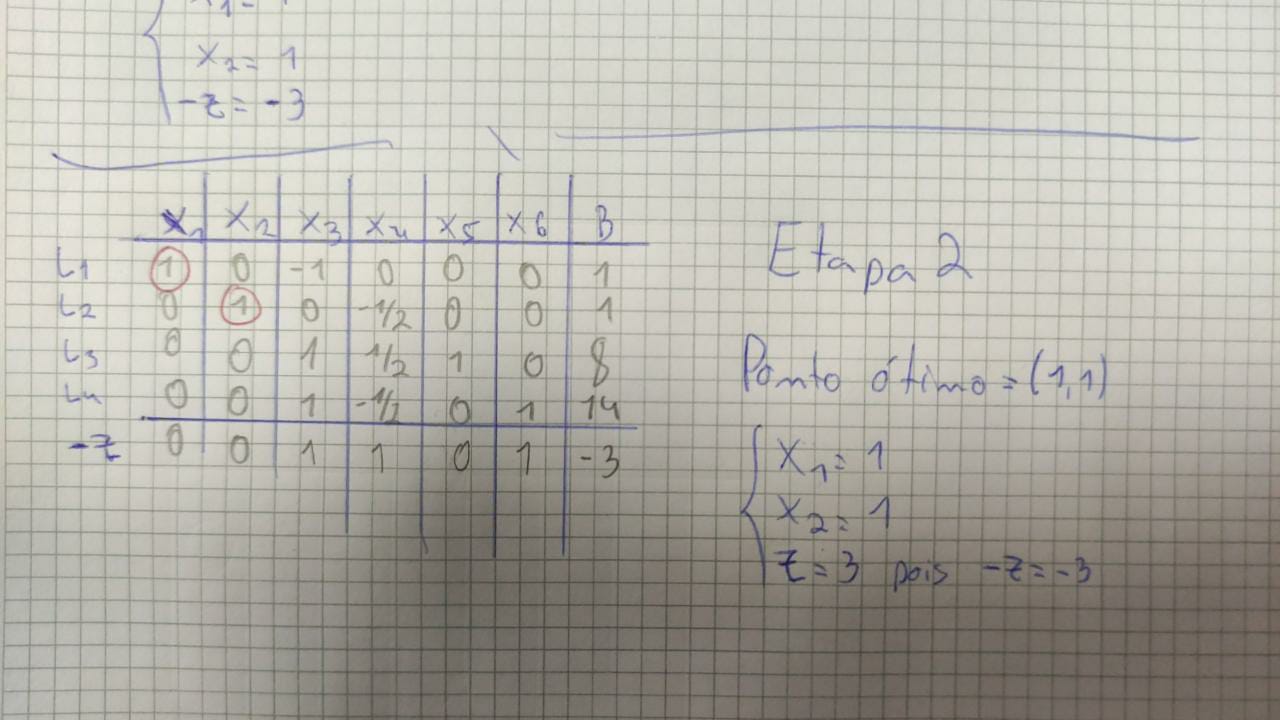 x₂ = 1
-z = -3
x₁ x₂ x₃ x₄ x₅ x₆ B
L1 1 0 -1 0 0 0 1
L2 0 1 0 -1/2 0 0 1
L3 0 0 1 1/2 1 0 8
L4 0 0 1 -1/2 0 1 14
-z 0 0 1 1 0 1 -3
Etapa 2
Ponto ótimo = (1,1)
x₁ = 1
x₂ = 1
z = 3 pois -z = -3